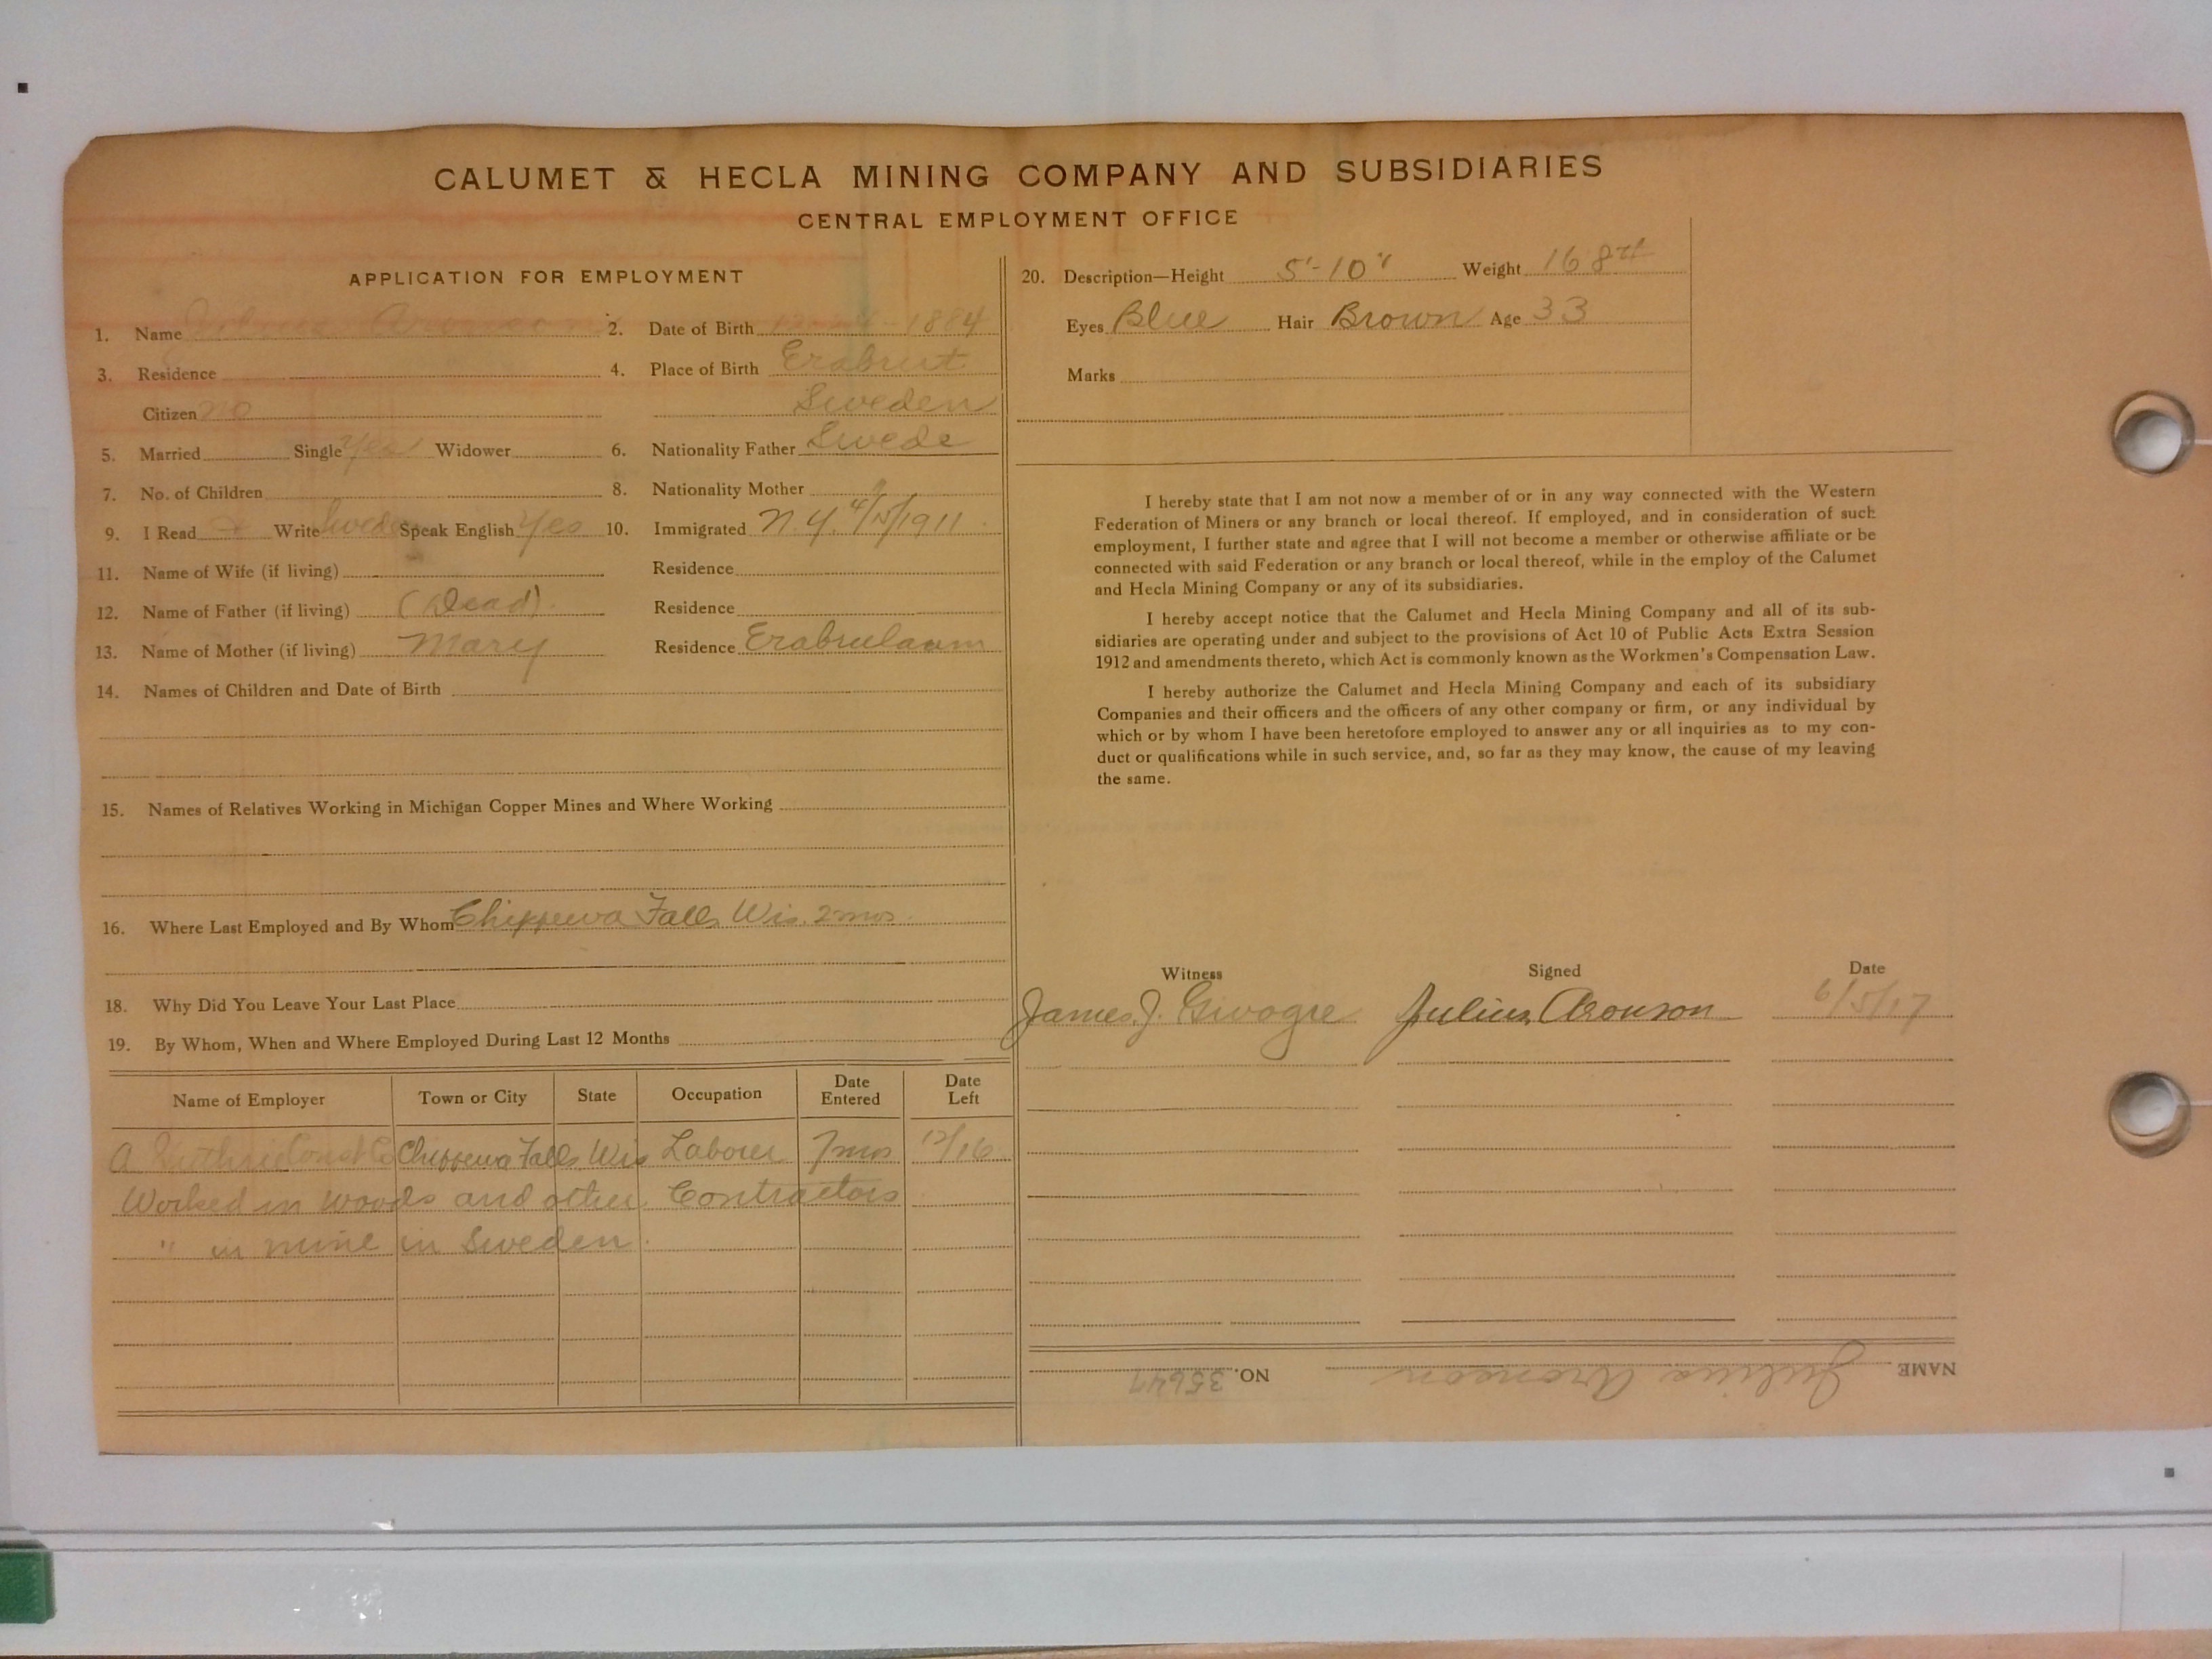 CALUMET & HECLA MINING COMPANY AND SUBSIDIARIES
CENTRAL EMPLOYMENT OFFICE
APPLICATION FOR EMPLOYMENT
1. Name Julius Aronson 2. Date of Birth 1884
3. Residence 4. Place of Birth
Citizen no Sweden
5. Married Single Yes Widower 6. Nationality Father Swede
7. No. of Children 8. Nationality Mother "
9. I Read & Write Swede Speak English Yes 10. Immigrated N.Y. 4/15/1911
11. Name of Wife (if living) Residence
12. Name of Father (if living) (Dead). Residence
13. Name of Mother (if living) Mary Residence
14. Names of Children and Date of Birth
15. Names of Relatives Working in Michigan Copper Mines and Where Working
16. Where Last Employed and By Whom Chippewa Falls Wis. 2 mos.
18. Why Did You Leave Your Last Place
19. By Whom, When and Where Employed During Last 12 Months
Name of Employer Town or City State Occupation Date Entered Date Left
A Guthrie Const Co Chippewa Falls Wis Laborer 7 mos 12/16
Worked in woods and other Contractors
" in mine in Sweden.
20. Description—Height 5'-10" Weight 168#
Eyes Blue Hair Brown Age 33
Marks
I hereby state that I am not now a member of or in any way connected with the Western
Federation of Miners or any branch or local thereof. If employed, and in consideration of such
employment, I further state and agree that I will not become a member or otherwise affiliate or be
connected with said Federation or any branch or local thereof, while in the employ of the Calumet
and Hecla Mining Company or any of its subsidiaries.
I hereby accept notice that the Calumet and Hecla Mining Company and all of its sub-
sidiaries are operating under and subject to the provisions of Act 10 of Public Acts Extra Session
1912 and amendments thereto, which Act is commonly known as the Workmen's Compensation Law.
I hereby authorize the Calumet and Hecla Mining Company and each of its subsidiary
Companies and their officers and the officers of any other company or firm, or any individual by
which or by whom I have been heretofore employed to answer any or all inquiries as to my con-
duct or qualifications while in such service, and, so far as they may know, the cause of my leaving
the same.
Witness Signed Date
James J. Julius Aronson 6/5/17
NAME Julius Aronson NO. 35647